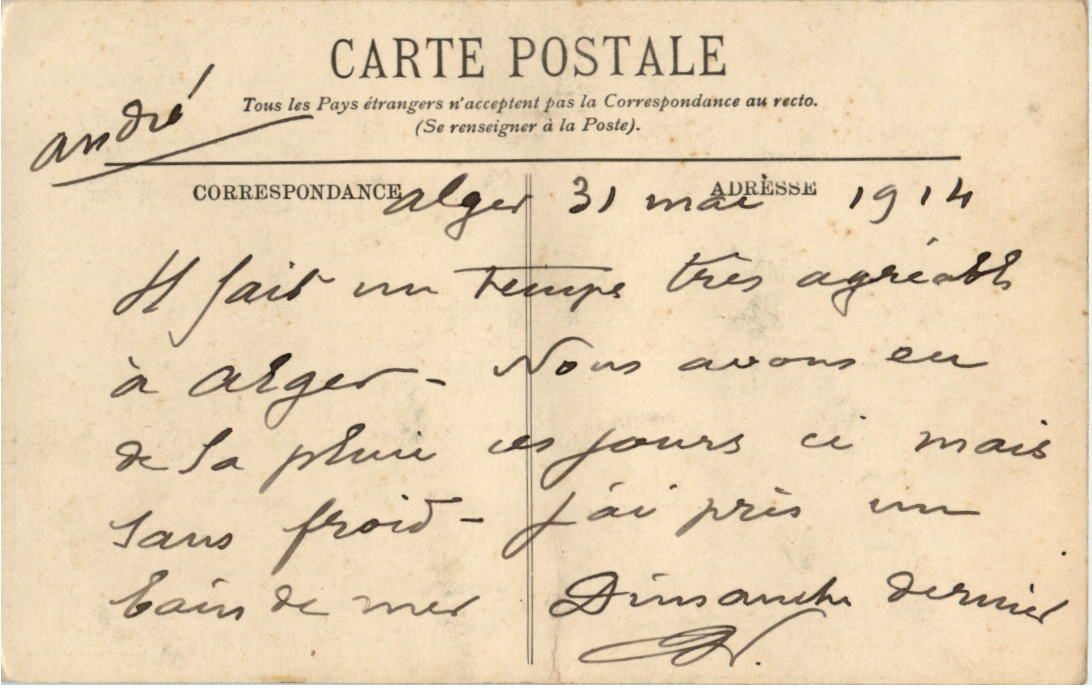 CARTE POSTALE
Tous les Pays étrangers n'acceptent pas la Correspondance au recto.
(Se renseigner à la Poste).
andré
CORRESPONDANCE
ADRÈSSE
alger 31 mai 1914
Il fait un temps très agréable
à alger - Nous avons eu
de la pluie ces jours ci mais
sans froid - j'ai près un
bain de mer Dimanche dernier